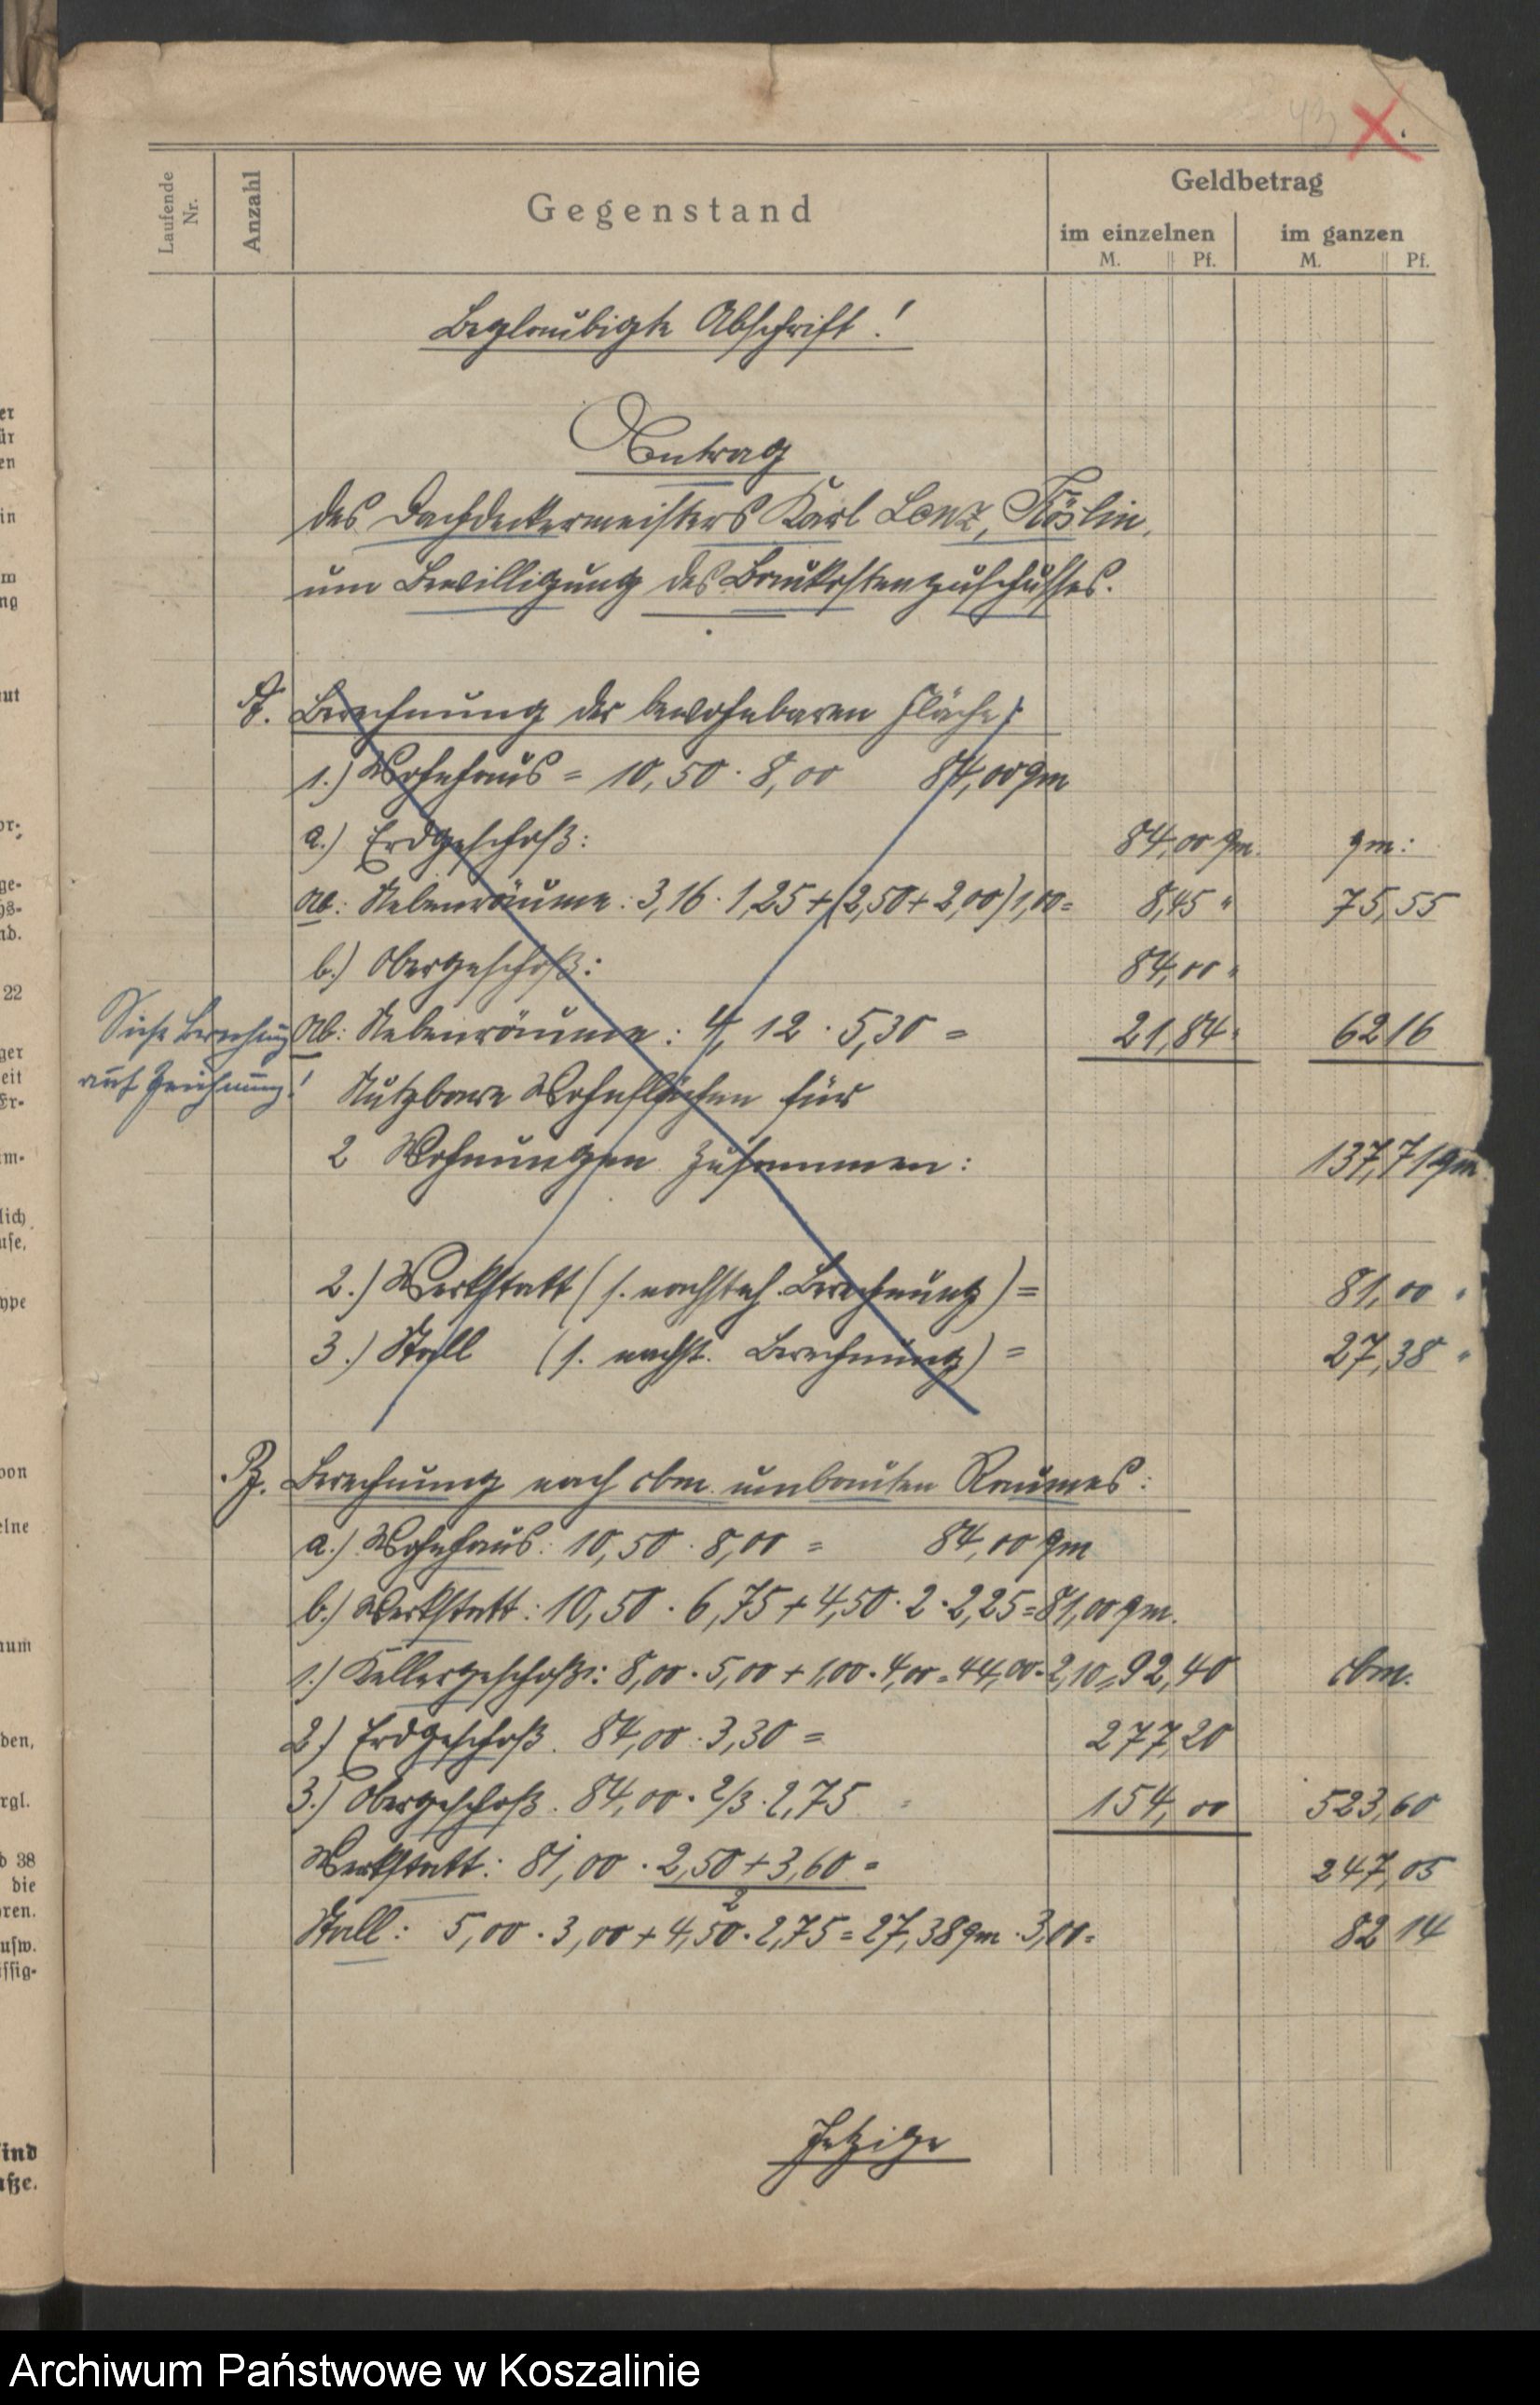 43
Laufende Nr.
Anzahl
Gegenstand
Geldbetrag
im einzelnen
im ganzen
M. Pf. M. Pf.
Beglaubigte Abschrift!
Antrag
des Dachdeckermeisters Karl Lenz, Köslin,
um Bewilligung des Baukostenzuschusses.
A. Berechnung der bewohnbaren Fläche:
1.) Wohnhaus = 10,50 · 8,00 84,00 qm
a.) Erdgeschoß: 84,00 qm. qm:
ab: Nebenräume: 3,16 · 1,25 + (2,50 + 2,00) 1,00 = 8,45 " 75,55
b.) Obergeschoß: 84,00 "
ab: Nebenräume: 4,12 · 5,30 = 21,84 " 62 16
Siehe Berechnung
auf Zeichnung!
Nutzbare Wohnflächen für
2 Wohnungen zusammen: 137,71 qm.
2.) Werkstatt (s. nachsteh. Berechnung) = 81,00 "
3.) Stall (s. nachst. Berechnung) = 27,38 "
B. Berechnung nach cbm umbauten Raumes:
a.) Wohnhaus: 10,50 · 8,00 = 84,00 qm
b.) Werkstatt: 10,50 · 6,75 + 4,50 · 2 · 2,25 = 81,00 qm.
1.) Kellergeschoß: 8,00 · 5,00 + 1,00 · 4,00 = 44,00 · 2,10 = 92,40 cbm.
2.) Erdgeschoß. 84,00 · 3,30 = 277,20
3.) Obergeschoß. 84,00 · 2/3 · 2,75 = 154,00 523,60
Werkstatt: 81,00 · 2,50 + 3,60 = 247,05
2
Stall: 5,00 · 3,00 + 4,50 · 2,75 = 27,38 qm · 3,00 = 82 14
Jetzige
er
ür
en
in
m
ng
aut
or-
ge-
hs-
nd.
22
ger
eit
Er-
im-
lich
use,
type
von
elne
num
den,
rgl.
b 38
die
oren.
usw.
ssig-
sind
aße.
Archiwum Państwowe w Koszalinie